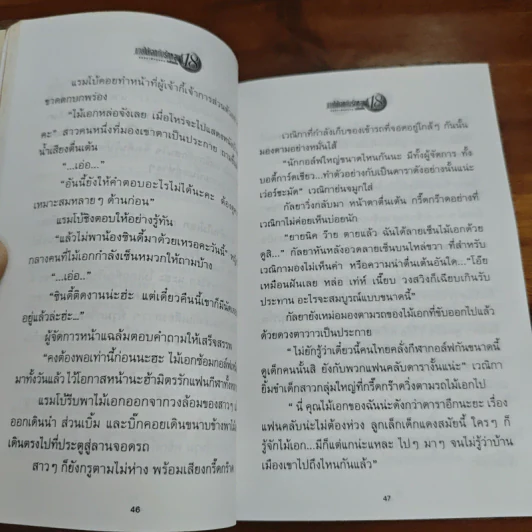 แรมโบ้คอยทำหน้าที่ผู้เจ้ากี้เจ้าการส่วนตัว
ขาดตกบกพร่อง
"ไม้เอกหล่อจังเลย เมื่อไหร่จะไปแสดงหนัง
คะ" สาวคนหนึ่งที่มองเขาตาเป็นประกาย ถามขึ้น
น้ำเสียงตื่นเต้น
"...เอ่อ..."
"อันนี้ยังให้คำตอบอะไรไม่ได้นะคะ ต้อง
เหมาะสมหลายๆ ด้านก่อน"
แรมโบ้ชิงตอบให้อย่างรู้ทัน
"แล้วไม่พาน้องซินดี้มาด้วยเหรอคะวันนี้"
กลางคนที่ไม้เอกกำลังเซ็นหมวกให้ถามบ้าง
"...เอ่อ..."
"ซินดี้ติดงานน่ะฮ่ะ แต่เดี๋ยวคืนนี้เขาก็มี
อยู่แล้วล่ะฮ่ะ..."
ผู้จัดการหน้าแฉล้มตอบคำถามให้เสร็จสรรพ
"คงต้องพอเท่านี้ก่อนนะฮะ ไม้เอกซ้อมกอล์ฟ
มาทั้งวันแล้ว ไว้โอกาสหน้านะฮ้ามิตรรักแฟนกีฬา
แรมโบ้รีบพาไม้เอกออกจากวงล้อมของสาวๆ
ออกเดินนำ ส่วนเบิ้ม และบิ๊กคอยเดินขนาบข้าง
เดินตรงไปที่ประตูสู่ลานจอดรถ
สาวๆ ก็ยังกรูตามไม่ห่าง พร้อมเสียงกรี๊ดกร๊าด
46
เวณิกาที่กำลังเก็บของเข้ารถที่จอดอยู่ใกล้ๆ กันนั้น
มองตามอย่างหมั่นไส้
"นักกอล์ฟใหญ่ขนาดไหนกันนะ มีทั้งผู้จัดการ ทั้ง
บอดี้การ์ดเชียว...ทำตัวอย่างกับเป็นดาราดังอย่างนั้นแน่ะ
เว่อร์ชะมัด" เวณิกาย่นจมูกใส่
กัลยาวิ่งกลับมา หน้าตาตื่นเต้น กรี๊ดกร๊าดอย่างที่
เวณิกาไม่ค่อยเห็นบ่อยนัก
"ยายนิค ว้าย ตายแล้ว ฉันได้ลายเซ็นไม้เอกด้วย
ดูสิ..." กัลยาหันหลังอวดลายเซ็นบนไหล่ขวา ที่สำหรับ
เวณิกามองไม่เห็นค่า หรือความน่าตื่นเต้นอันใด..."โอ๊ย
เหมือนฝันเลย หล่อ เท่ห์ เนี้ยบ วงสวิงก็เฉียบเกินรับ
ประทาน อะไรจะสมบูรณ์แบบขนาดนี้"
กัลยายังเหม่อมองตามรถของไม้เอกที่ขับออกไปแล้ว
ด้วยดวงตาวาวเป็นประกาย
"ไม่ยักรู้ว่าเดี๋ยวนี้คนไทยคลั่งกีฬากอล์ฟกันขนาดนี้
ดูเด็กคนนั้นสิ ยังกับพวกแฟนคลับดารางั้นแน่ะ" เวณิกา
ยิ้มขำเด็กสาวกลุ่มใหญ่ที่กรี๊ดกร๊าดวิ่งตามรถไม้เอกไป
"นี่ คุณไม้เอกของฉันน่ะดังกว่าดาราอีกนะยะ เรื่อง
แฟนคลับน่ะไม่ต้องห่วง ลูกเล็กเด็กแดงสมัยนี้ ใครๆ ก็
รู้จักไม้เอก...มีก็แต่แกน่ะแหละ ไปๆ มาๆ จนไม่รู้ว่าบ้าน
เมืองเขาไปถึงไหนกันแล้ว"
47